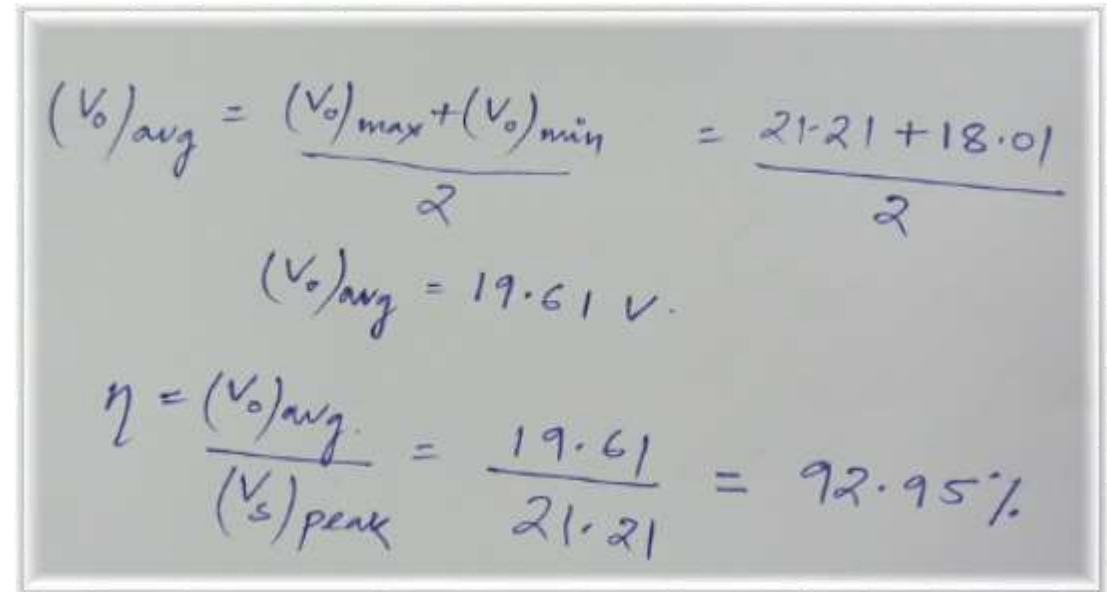 (V₀)avg = (V₀)max + (V₀)min / 2 = 21.21 + 18.01 / 2
(V₀)avg = 19.61 V.
η = (V₀)avg. / (Vs)peak = 19.61 / 21.21 = 92.95%